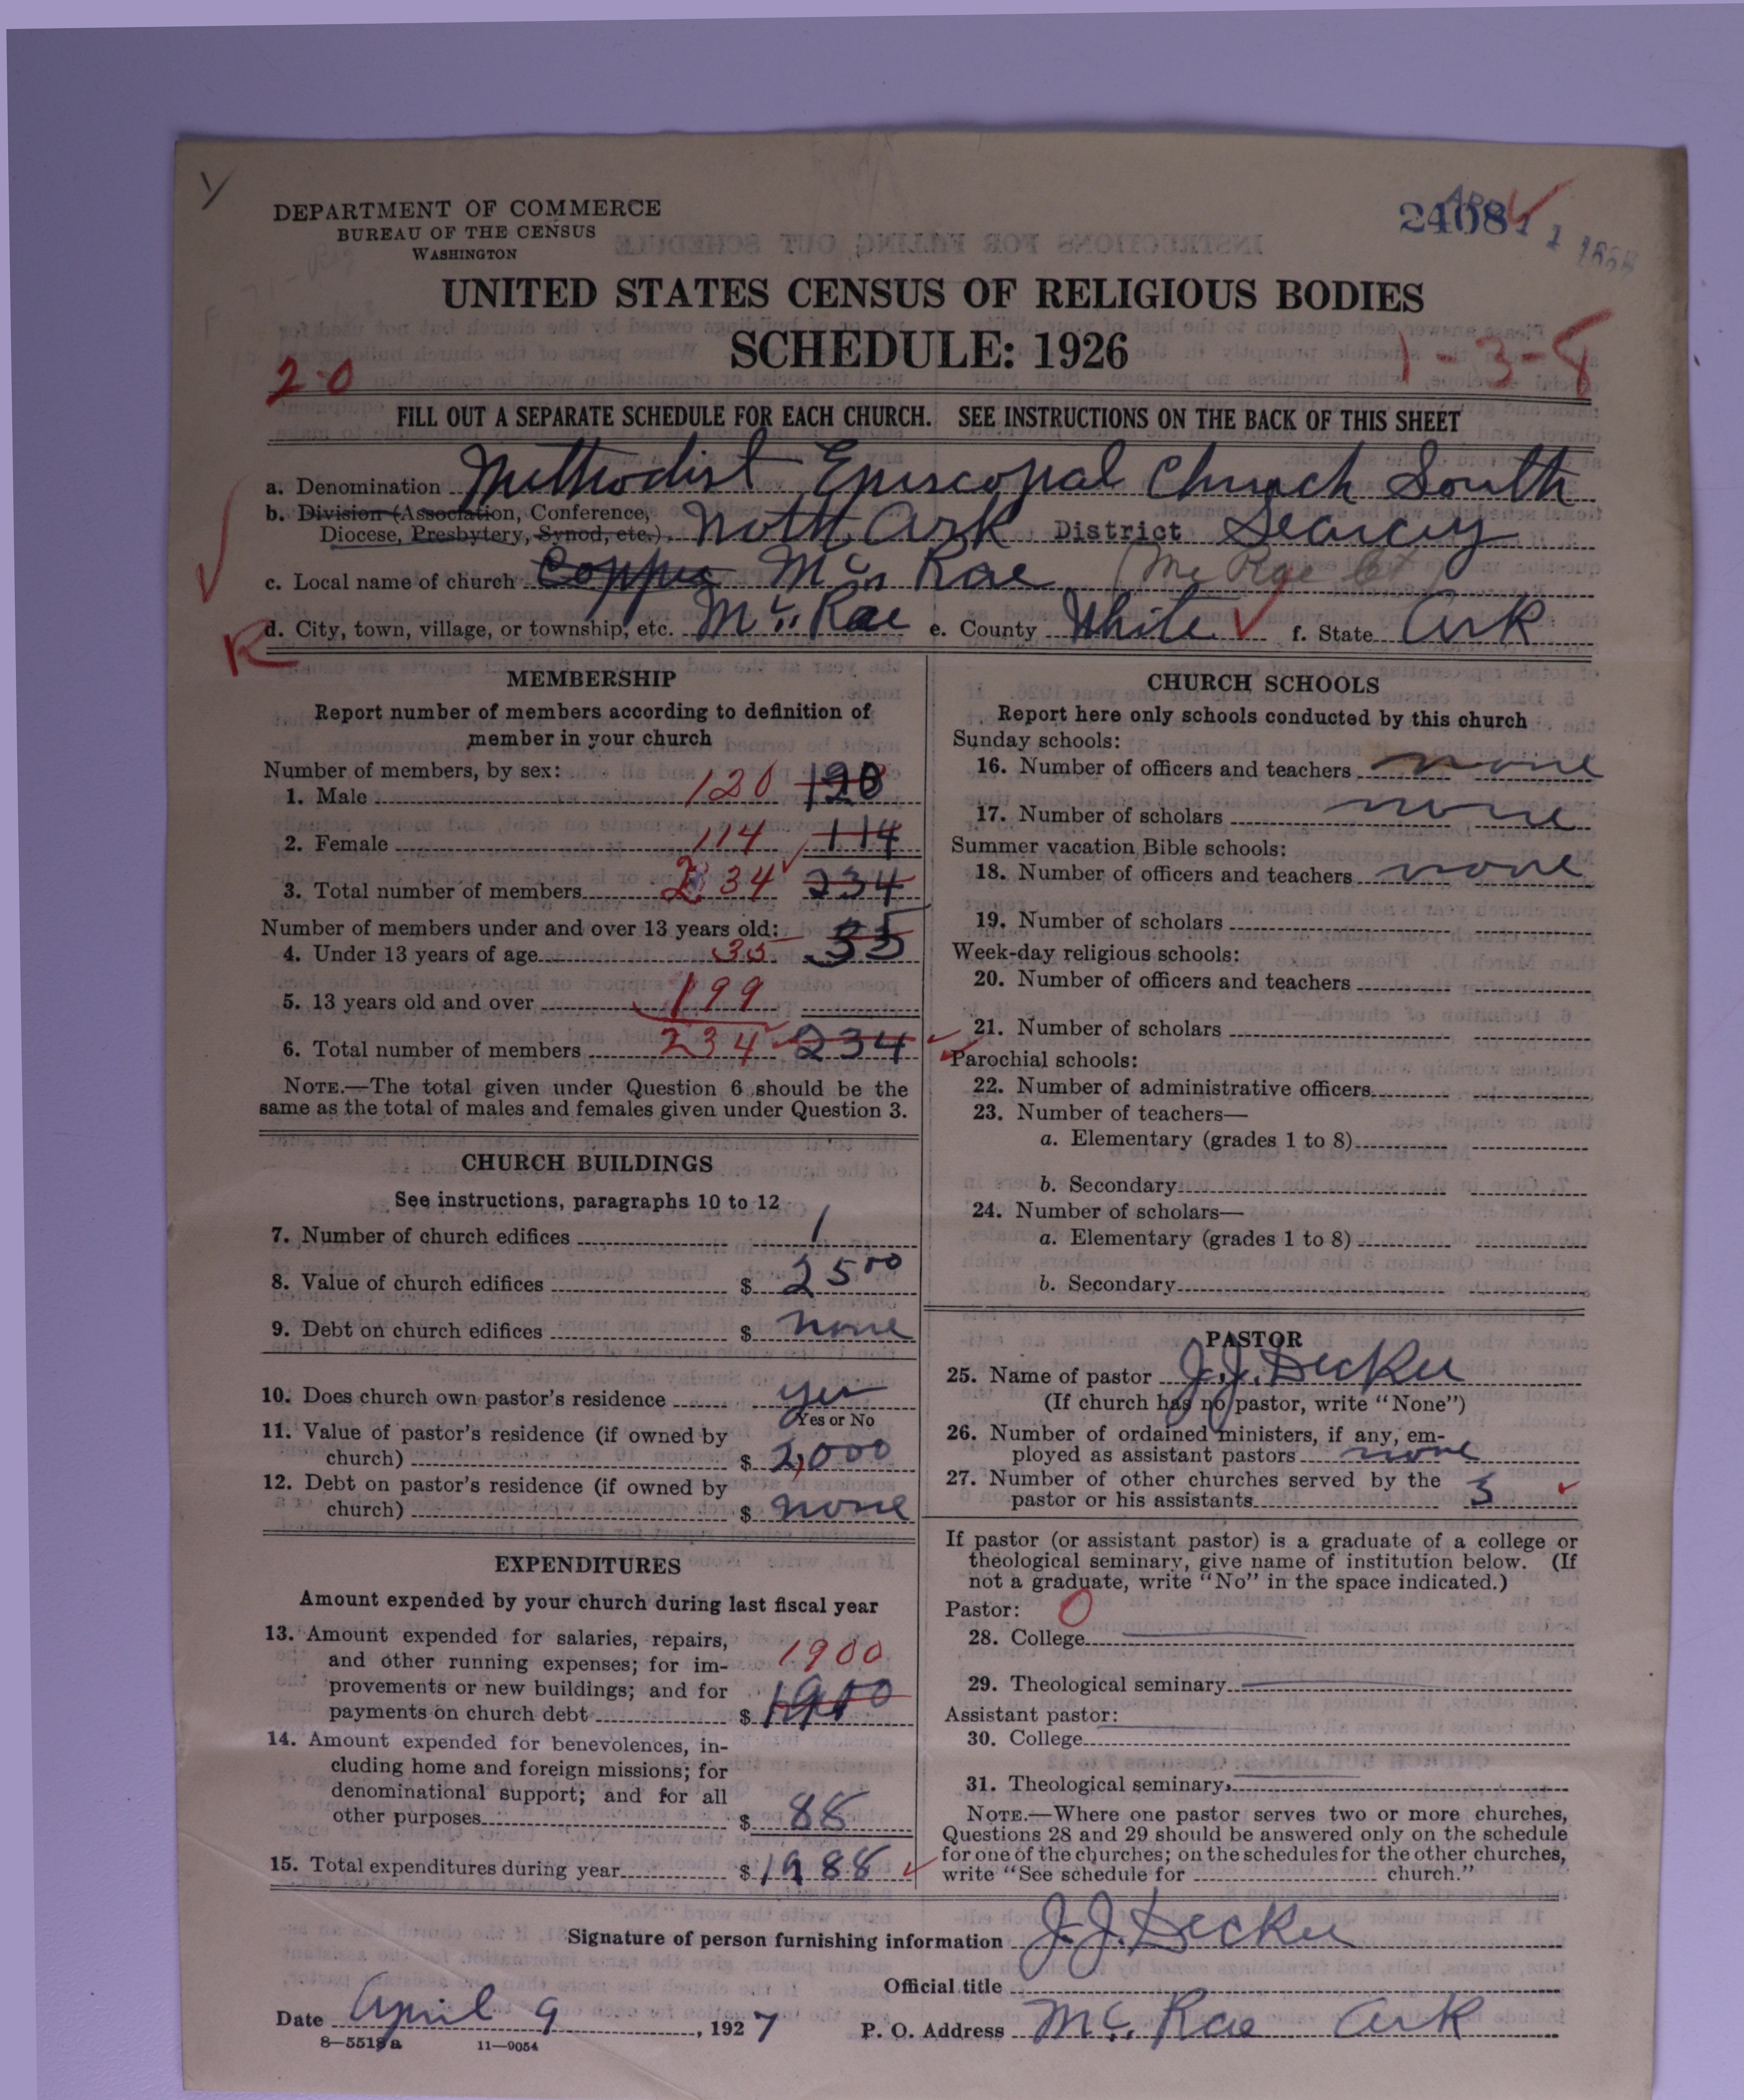 DEPARTMENT OF COMMERCE
BUREAU OF THE CENSUS
WASHINGTON
24081
UNITED STATES CENSUS OF RELIGIOUS BODIES
SCHEDULE: 1926
2-0
1-3-8
FILL OUT A SEPARATE SCHEDULE FOR EACH CHURCH. SEE INSTRUCTIONS ON THE BACK OF THIS SHEET
a. Denomination Methodist Episcopal Church South
b. Division (Association, Conference, Diocese, Presbytery, Synod, etc.) North Ark District Searcy
c. Local name of church McRae (McRae Ct)
R
d. City, town, village, or township, etc. McRae e. County White f. State Ark
MEMBERSHIP
Report number of members according to definition of
member in your church
Number of members, by sex:
1. Male 120 120
2. Female 114 114
3. Total number of members 234 234
Number of members under and over 13 years old:
4. Under 13 years of age 35 35
5. 13 years old and over 199
6. Total number of members 234 234
NOTE.—The total given under Question 6 should be the
same as the total of males and females given under Question 3.
CHURCH BUILDINGS
See instructions, paragraphs 10 to 12
7. Number of church edifices 1
8. Value of church edifices $ 2500
9. Debt on church edifices $ none
10. Does church own pastor's residence yes
Yes or No
11. Value of pastor's residence (if owned by
church) $ 2,000
12. Debt on pastor's residence (if owned by
church) $ none
EXPENDITURES
Amount expended by your church during last fiscal year
13. Amount expended for salaries, repairs,
and other running expenses; for im- 1900
provements or new buildings; and for
payments on church debt $ 1900
14. Amount expended for benevolences, in-
cluding home and foreign missions; for
denominational support; and for all
other purposes $ 88
15. Total expenditures during year $ 1988
CHURCH SCHOOLS
Report here only schools conducted by this church
Sunday schools:
16. Number of officers and teachers none
17. Number of scholars none
Summer vacation Bible schools:
18. Number of officers and teachers none
19. Number of scholars
Week-day religious schools:
20. Number of officers and teachers
21. Number of scholars
Parochial schools:
22. Number of administrative officers
23. Number of teachers—
a. Elementary (grades 1 to 8)
b. Secondary
24. Number of scholars—
a. Elementary (grades 1 to 8)
b. Secondary
PASTOR
25. Name of pastor J. J. Decker
(If church has no pastor, write "None")
26. Number of ordained ministers, if any, em-
ployed as assistant pastors none
27. Number of other churches served by the
pastor or his assistants 3
If pastor (or assistant pastor) is a graduate of a college or
theological seminary, give name of institution below. (If
not a graduate, write "No" in the space indicated.)
Pastor: 0
28. College
29. Theological seminary
Assistant pastor:
30. College
31. Theological seminary
NOTE.—Where one pastor serves two or more churches,
Questions 28 and 29 should be answered only on the schedule
for one of the churches; on the schedules for the other churches,
write "See schedule for church."
Signature of person furnishing information J. J. Decker
Official title
Date April 9, 1927 P. O. Address McRae Ark
8—5518a 11—9054